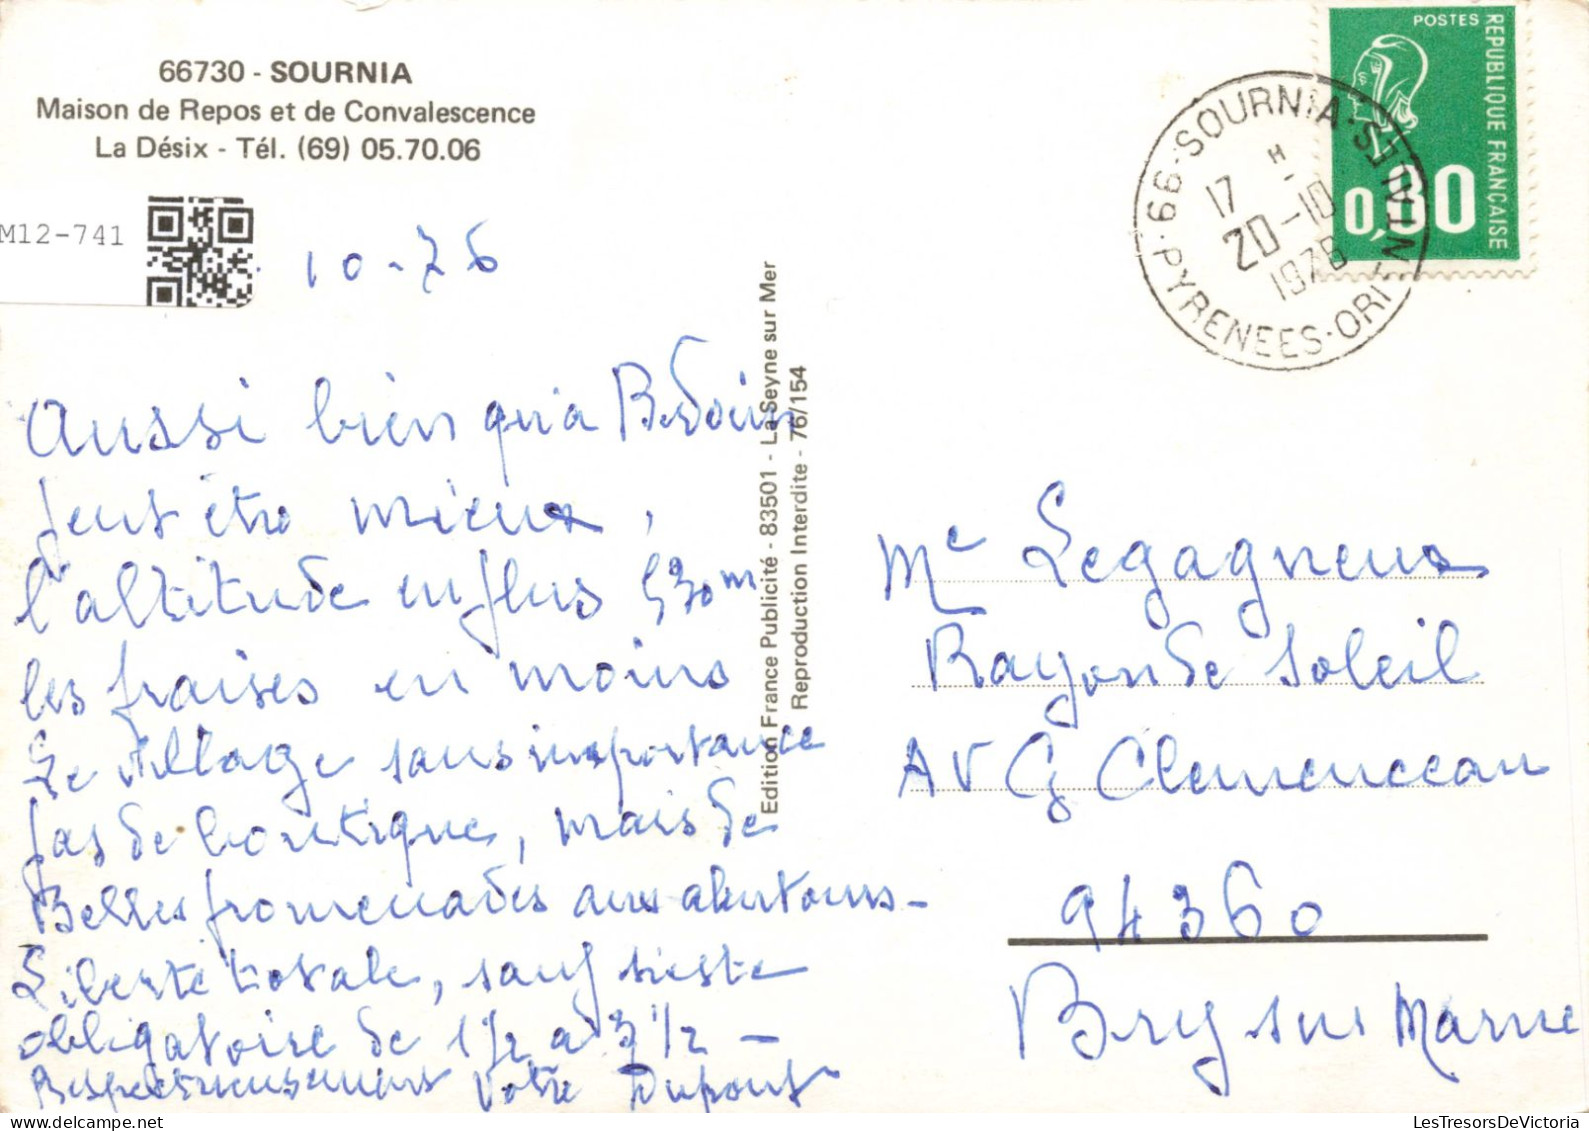 66730 - SOURNIA
Maison de Repos et de Convalescence
La Désix - Tél. (69) 05.70.06
M12-741
10-76
Aussi bien qu'a Bedoin
peut être mieux,
l'altitude en plus 530m
les fraises en moins
Le village sans importance
pas de boutique, mais de
Belles promenades aux alentours -
Liberté totale, sauf sieste
obligatoire de 1 1/2 a 3 1/2 -
Respectueusement Votre Dupont
Edition France Publicité - 83501 - La Seyne sur Mer
Reproduction Interdite - 76/154
POSTES
REPUBLIQUE FRANÇAISE
0,80
66 · SOURNIA · PYRENEES-ORIENTALES
17 H
20-10
1976
Me Legagneux
Rayon de Soleil
AV G Clemenceau
94360
Bry sur Marne
LesTresorsDeVictoria